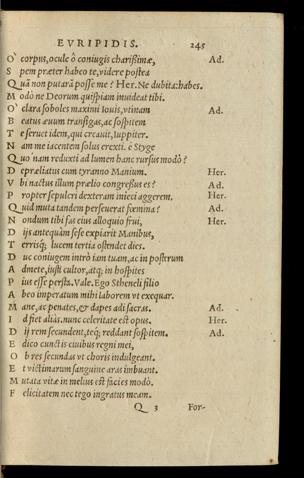 EVRIPIDIS. 245
O' corpus, ocule ô coniugis charißimæ, Ad.
S pem præter habeo te, videre postea
Q uâ non putarâ posse me? Her. Ne dubita: habes.
M odò ne Deorum quispiam inuideat tibi.
O' clara soboles maximi Iouis, vtinam Ad.
B eatus æuum transigas, ac sospitem
T e seruet idem, qui creauit, Iuppiter.
N am me iacentem solus erexti. è Styge
Q uo nam reduxti ad lumen hanc rursus modò?
D epræliatus cum tyranno Manium. Her.
V bi nactus illum prælio congressus es? Ad.
P ropter sepulcri dexteram inieci aggerem. Her.
Q uid muta tandem perseuerat fœmina? Ad.
N ondum tibi fas eius alloquio frui, Her.
D ijs antequàm sese expiarit Manibus,
T errisq; lucem tertia ostendet dies.
D uc coniugem intrò iam tuam, ac in posterum
A dmete, iusti cultor, atq; in hospites
P ius esse persta. Vale. Ego Stheneli filio
A beo imperatum mihi laborem vt exequar.
M ane, ac penates, & dapes adi sacras. Ad.
I d fiet aliàs. nunc celeritate est opus. Her.
D ij rem secundent, teq; reddant sospitem. Ad.
E dico cunctis ciuibus regni mei,
O b res secundas vt choris indulgeant.
E t victimarum sanguine aras imbuant.
M utata vitæ in melius est facies modò.
F elicitatem nec tego ingratus meam.
Q 3 For-